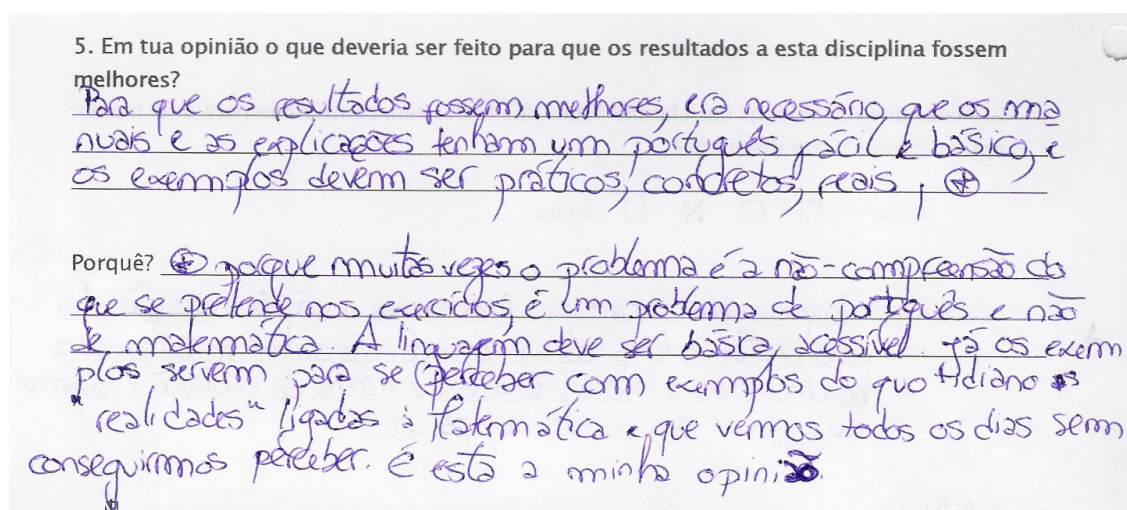 5. Em tua opinião o que deveria ser feito para que os resultados a esta disciplina fossem
melhores?
Para que os resultados fossem melhores, era necessário que os ma
nuais e as explicações tenham um português fácil e básico, e
os exemplos devem ser práticos, concretos, reais, +
Porquê? + porque muitas vezes o problema é a não-compreensão do
que se pretende nos exercícios, é um problema de português e não
de matemática. A linguagem deve ser básica, acessível. Já os exem
plos servem para se perceber com exemplos do quotidiano as
"realidades" ligadas à Matemática e que vemos todos os dias sem
conseguirmos perceber. É esta a minha opinião.